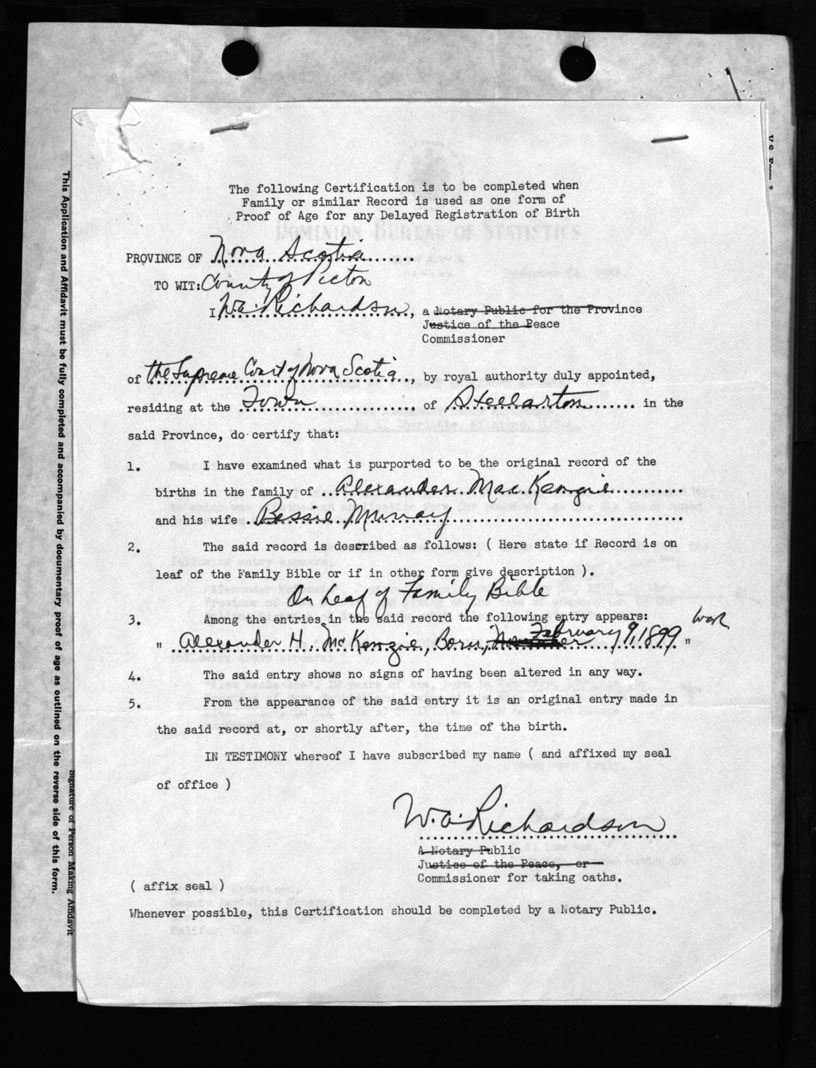 The following Certification is to be completed when
Family or similar Record is used as one form of
Proof of Age for any Delayed Registration of Birth
DOMINION BUREAU OF STATISTICS
PROVINCE OF Nova Scotia
TO WIT: County of Pictou
I W.A. Richardson, a Notary Public for the Province
Justice of the Peace
Commissioner
of the Supreme Court of Nova Scotia, by royal authority duly appointed,
residing at the Town of Stellarton in the
said Province, do certify that:
1. I have examined what is purported to be the original record of the
births in the family of Alexander MacKenzie
and his wife Bessie Murray
2. The said record is described as follows: ( Here state if Record is on
leaf of the Family Bible or if in other form give description ).
On Leaf of Family Bible
3. Among the entries in the said record the following entry appears:
" Alexander H. McKenzie, Born, November February 9, 1899 " WAR
4. The said entry shows no signs of having been altered in any way.
5. From the appearance of the said entry it is an original entry made in
the said record at, or shortly after, the time of the birth.
IN TESTIMONY whereof I have subscribed my name ( and affixed my seal
of office )
W.A. Richardson
A Notary Public
Justice of the Peace, or
Commissioner for taking oaths.
( affix seal )
Whenever possible, this Certification should be completed by a Notary Public.
This Application and Affidavit must be fully completed and accompanied by documentary proof of age as outlined on the reverse side of this form.
Signature of Person Making Affidavit